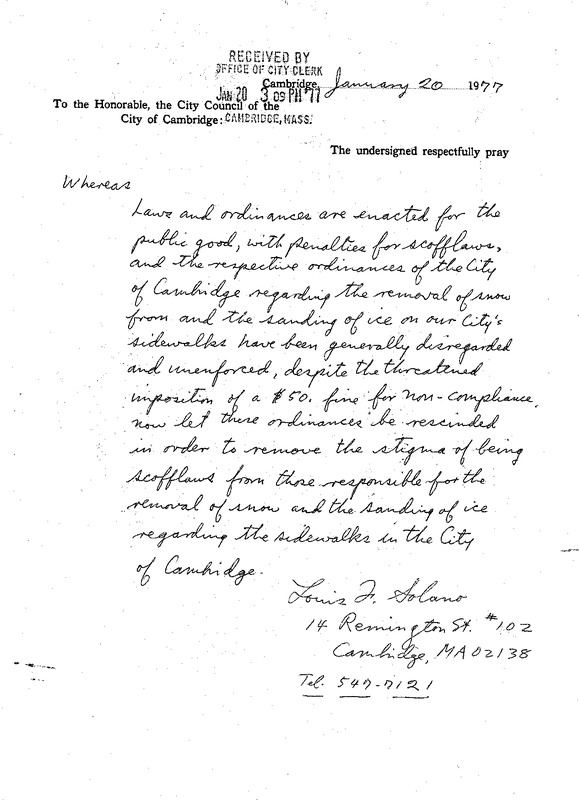 RECEIVED BY
OFFICE OF CITY CLERK
Cambridge, January 20 1977
JAN 20 3 09 PM '77
To the Honorable, the City Council of the
City of Cambridge: CAMBRIDGE, MASS.
The undersigned respectfully pray
Whereas
Laws and ordinances are enacted for the
public good, with penalties for scofflaws,
and the respective ordinances of the City
of Cambridge regarding the removal of snow
from and the sanding of ice on our City's
sidewalks have been generally disregarded
and unenforced, despite the threatened
imposition of a $50. fine for non-compliance,
now let these ordinances be rescinded
in order to remove the stigma of being
scofflaws from those responsible for the
removal of snow and the sanding of ice
regarding the sidewalks in the City
of Cambridge.
Louis F. Solano
14 Remington St. #102
Cambridge, MA 02138
Tel. 547-7121